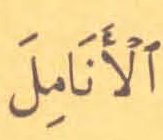 ٱلْأَنَامِلَ